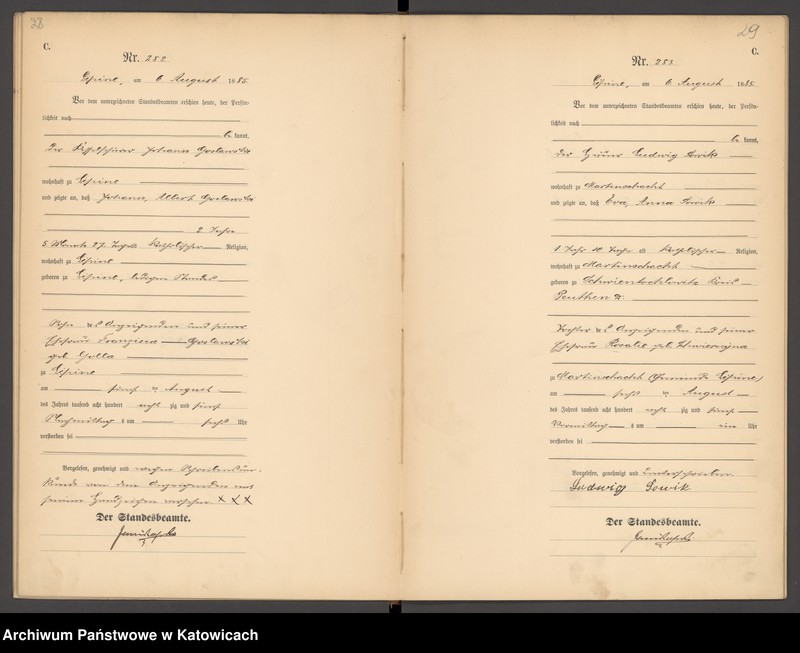 28
C.
Nr. 282
Lipine, am 6 August 1885
Vor dem unterzeichneten Standesbeamten erschien heute, der Persön-
lichkeit nach
be kannt,
der Johann
wohnhaft zu Lipine
und zeigte an, daß Johann, Albert
2 Jahre
5 Monate 27 Tage Katholischer Religion,
wohnhaft zu Lipine
geboren zu Lipine, ledigen Standes
Sohn des Anzeigenden und seiner
Ehefrau Franziska
geb. Golla
zu Lipine
am fünf ten August
des Jahres tausend acht hundert acht zig und fünf
Nachmittag s um sechs Uhr
verstorben sei
Vorgelesen, genehmigt und wegen Schreibensun-
kunde von dem Anzeigenden mit
seinem Handzeichen versehen XXX
Der Standesbeamte.
29
C.
Nr. 283
Lipine, am 6 August 1885
Vor dem unterzeichneten Standesbeamten erschien heute, der Persön-
lichkeit nach
be kannt,
der Ludwig Sowik
wohnhaft zu Martinschacht
und zeigte an, daß Eva, Anna Sowik
1 Jahr Tage alt Katholischer Religion,
wohnhaft zu Martinschacht
geboren zu Schwientochlowitz Kreis
Beuthen
Tochter des Anzeigenden und seiner
Ehefrau Rosalie geb.
zu Martinschacht (Gemeinde Lipine)
am sechs ten August
des Jahres tausend acht hundert acht zig und fünf
Vormittag s um ein Uhr
verstorben sei
Vorgelesen, genehmigt und unterschrieben.
Ludwig Sowik
Der Standesbeamte.
Archiwum Państwowe w Katowicach